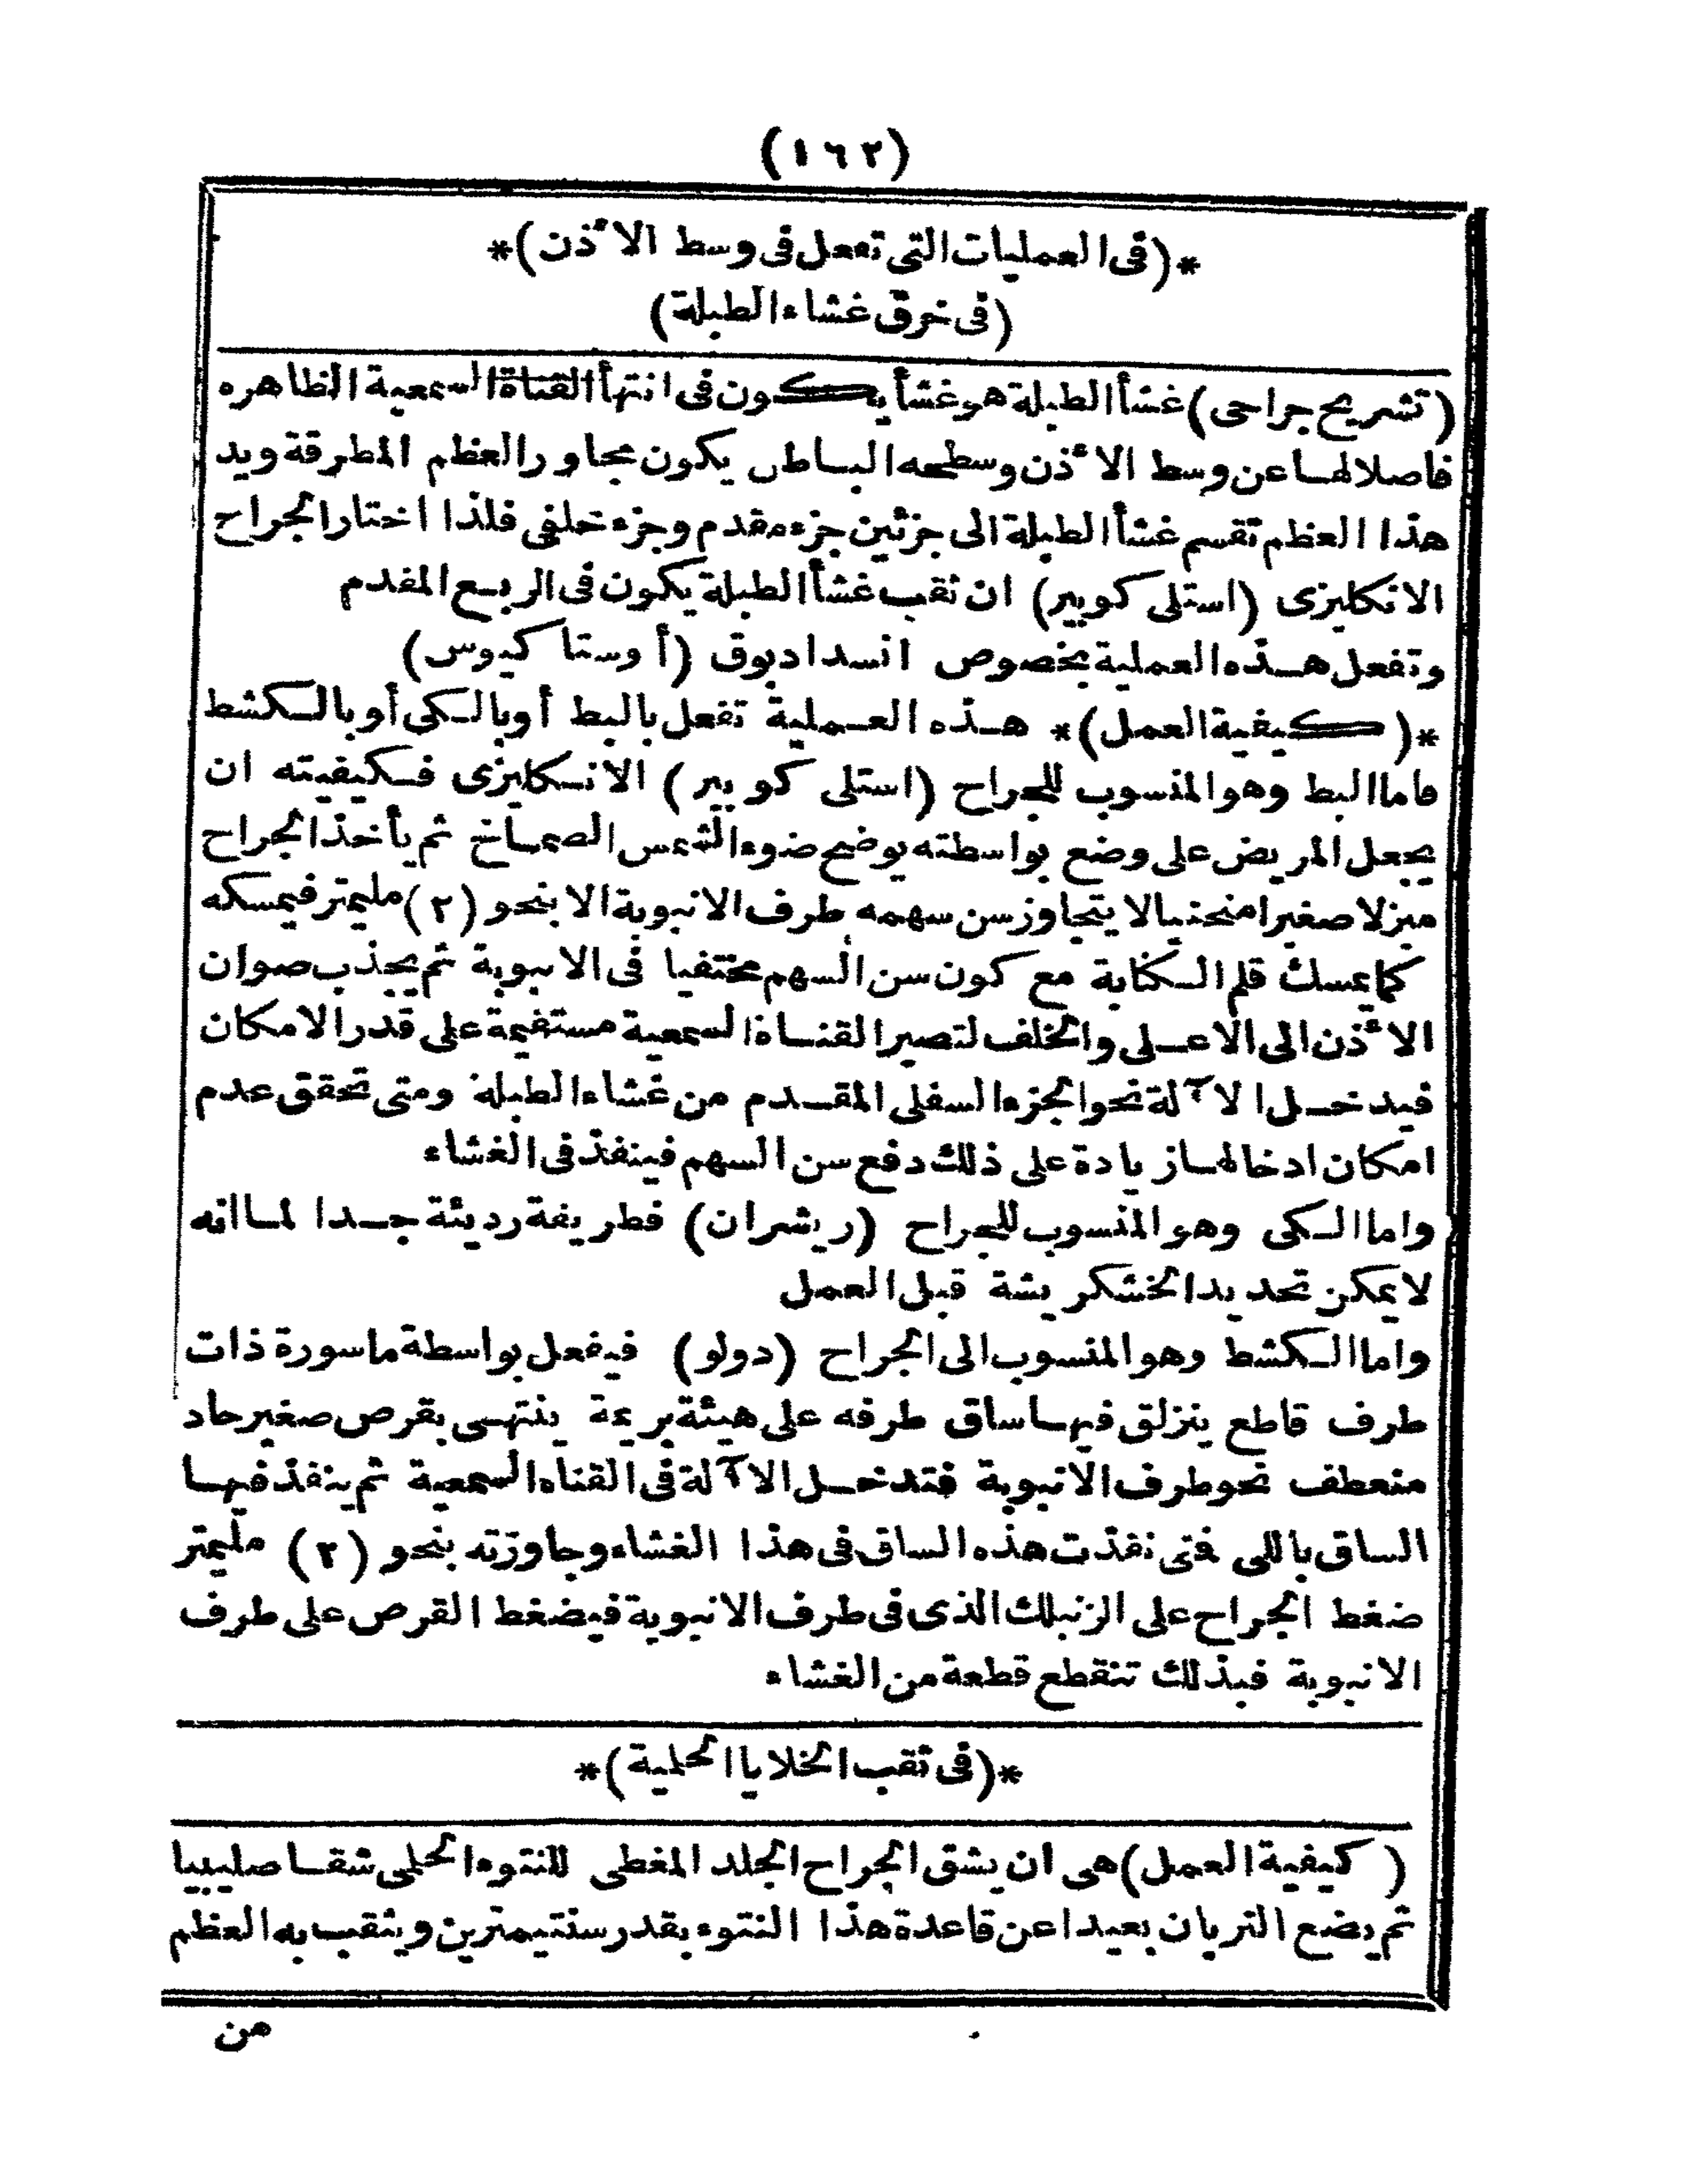 (١٦٢)
*(فى العمليات التى تفعل فى وسط الأذن)*
(فى خرق غشاء الطبلة)
(تشريح جراحى) غشأ الطبلة هو غشأ يكون فى انتهأ القناة السمعية الظاهره
فاصلا لهاعن وسط الأذن وسطحه الباطن يكون مجاورا لعظم المطرقة ويد
هذا العظم تقسم غشأ الطبلة الى جزئين جزء مقدم وجزء خلفى فلذا اختار الجراح
الانكليزى (استلى كوپير) ان ثقب غشأ الطبلة يكون فى الربع المقدم
وتفعل هذه العملية بخصوص انسداد بوق (أوستا كيوس)
*(كيفية العمل)* هذه العملية تفعل بالبط أو بالكى أو بالكشط
فاما البط وهو المنسوب للجراح (استلى كوپير) الانكليزى فكيفيته ان
يجعل المريض على وضع بواسطته يوضح ضوء الشمس الصماخ ثم يأخذ الجراح
مبزلا صغيرا منحنيا لا يتجاوز سن سهمه طرف الانبوبة الا بنحو (٢) مليمتر فيمسكه
كما يمسك قلم الكتابة مع كون سن السهم مختفيا فى الانبوبة ثم يجذب صوان
الأذن الى الاعلى والخلف لتصير القناة السمعية مستقيمة على قدر الامكان
فيدخل الآلة نحو الجزء السفلى المقدم من غشاء الطبلة ومتى تحقق عدم
امكان ادخالها زيادة على ذلك دفع سن السهم فينفذ فى الغشاء
واما الكى وهو المنسوب للجراح (ريشران) فطريقة رديئة جدا لما انه
لا يمكن تحديد الخشكريشة قبل العمل
واما الكشط وهو المنسوب الى الجراح (دولو) فيفعل بواسطة ماسورة ذات
طرف قاطع ينزلق فيها ساق طرفه على هيئة بريمة ينتهى بقرص صغير حاد
منعطف نحو طرف الانبوبة فتدخل الآلة فى القناه السمعية ثم ينفذ فيها
الساق باللى فتى نفذت هذه الساق فى هذا الغشاء وجاوزته بنحو (٢) مليمتر
ضغط الجراح على الزنبلك الذى فى طرف الانبوبة فيضغط القرص على طرف
الانبوبة فبذلك تنقطع قطعة من الغشاء
*(فى ثقب الخلايا الحلمية)*
(كيفية العمل) هى ان يشق الجراح الجلد المغطى للنتوء الحلمى شقا صليبيا
ثم يضع التربان بعيدا عن قاعدة هذا النتوء بقدر سنتيمترين ويثقب به العظم
من